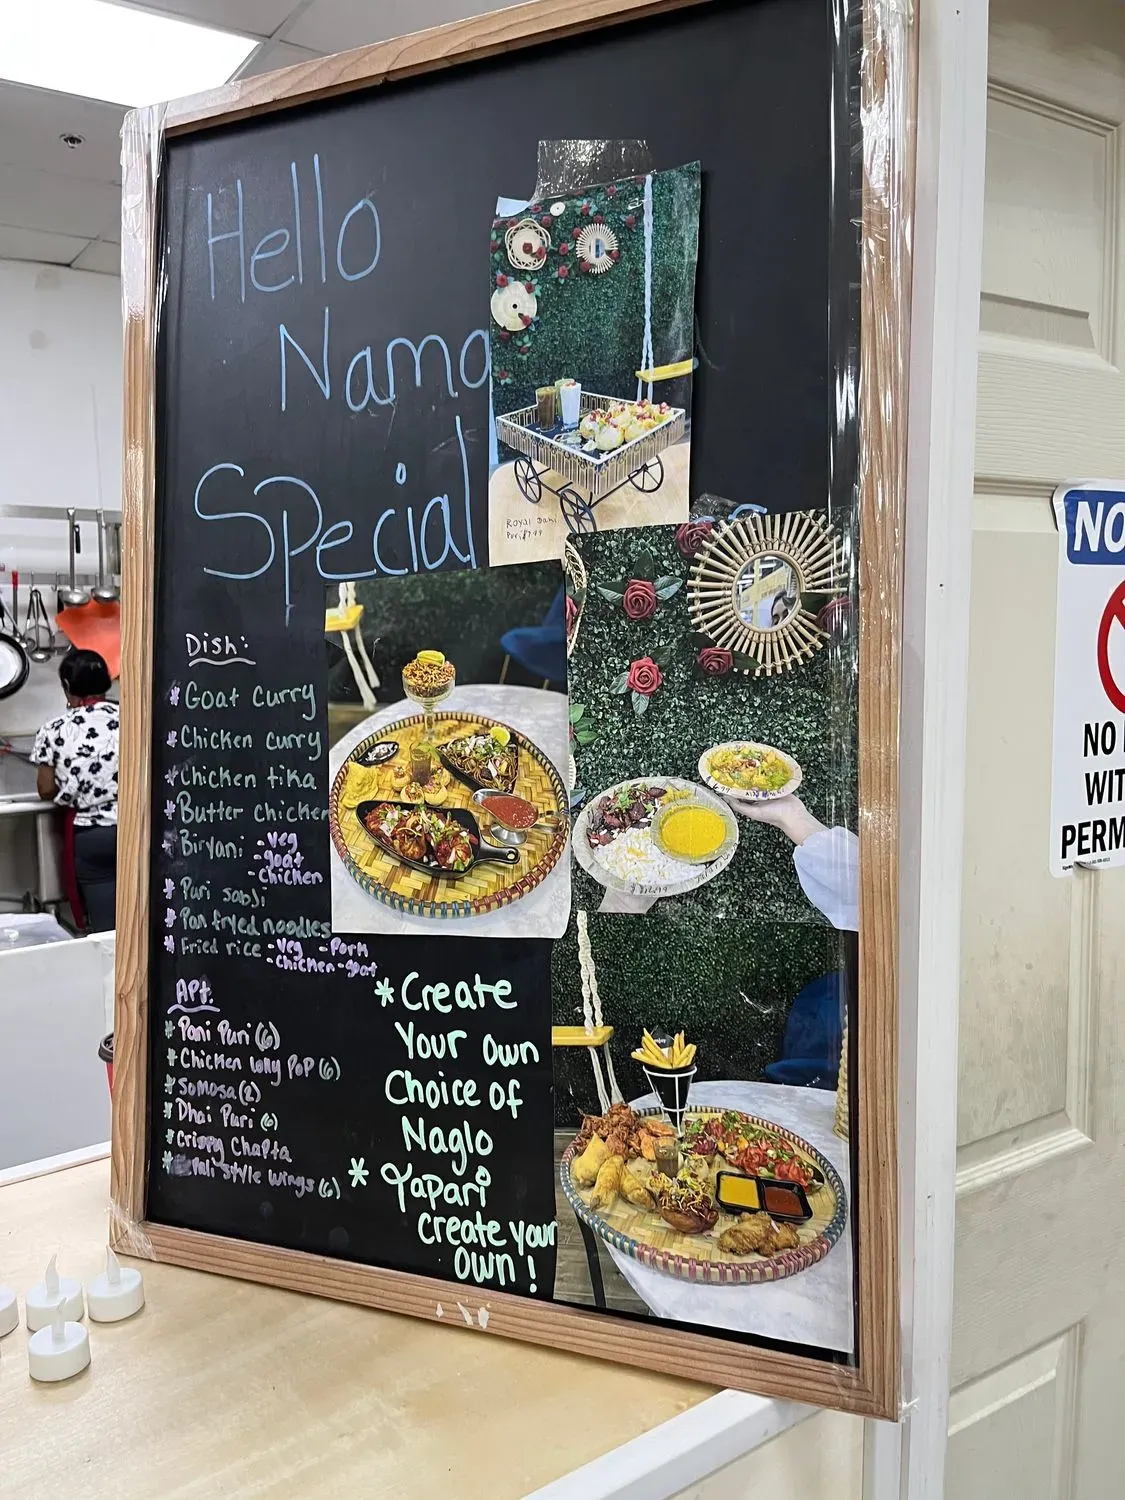 Hello
Nama
Special
ROYAl Dahi
Puri $7.99
Dish:
* Goat curry
* Chicken curry
* Chicken tika
* Butter chicken
* Biryani - Veg
- goat
- Chicken
* Puri sabji
* Pan fryed noodles
* Fried rice - Veg - Pork
- Chicken - goat
APt.
* Pani Puri (6)
* Chicken lolly PoP (6)
* Somosa (2)
* Dhai Puri (6)
* Crispy Chapta
* style wings (6)
* Create
Your Own
Choice of
Naglo
* Yapari
create your
Own!
NO
NO
WIT
PERM